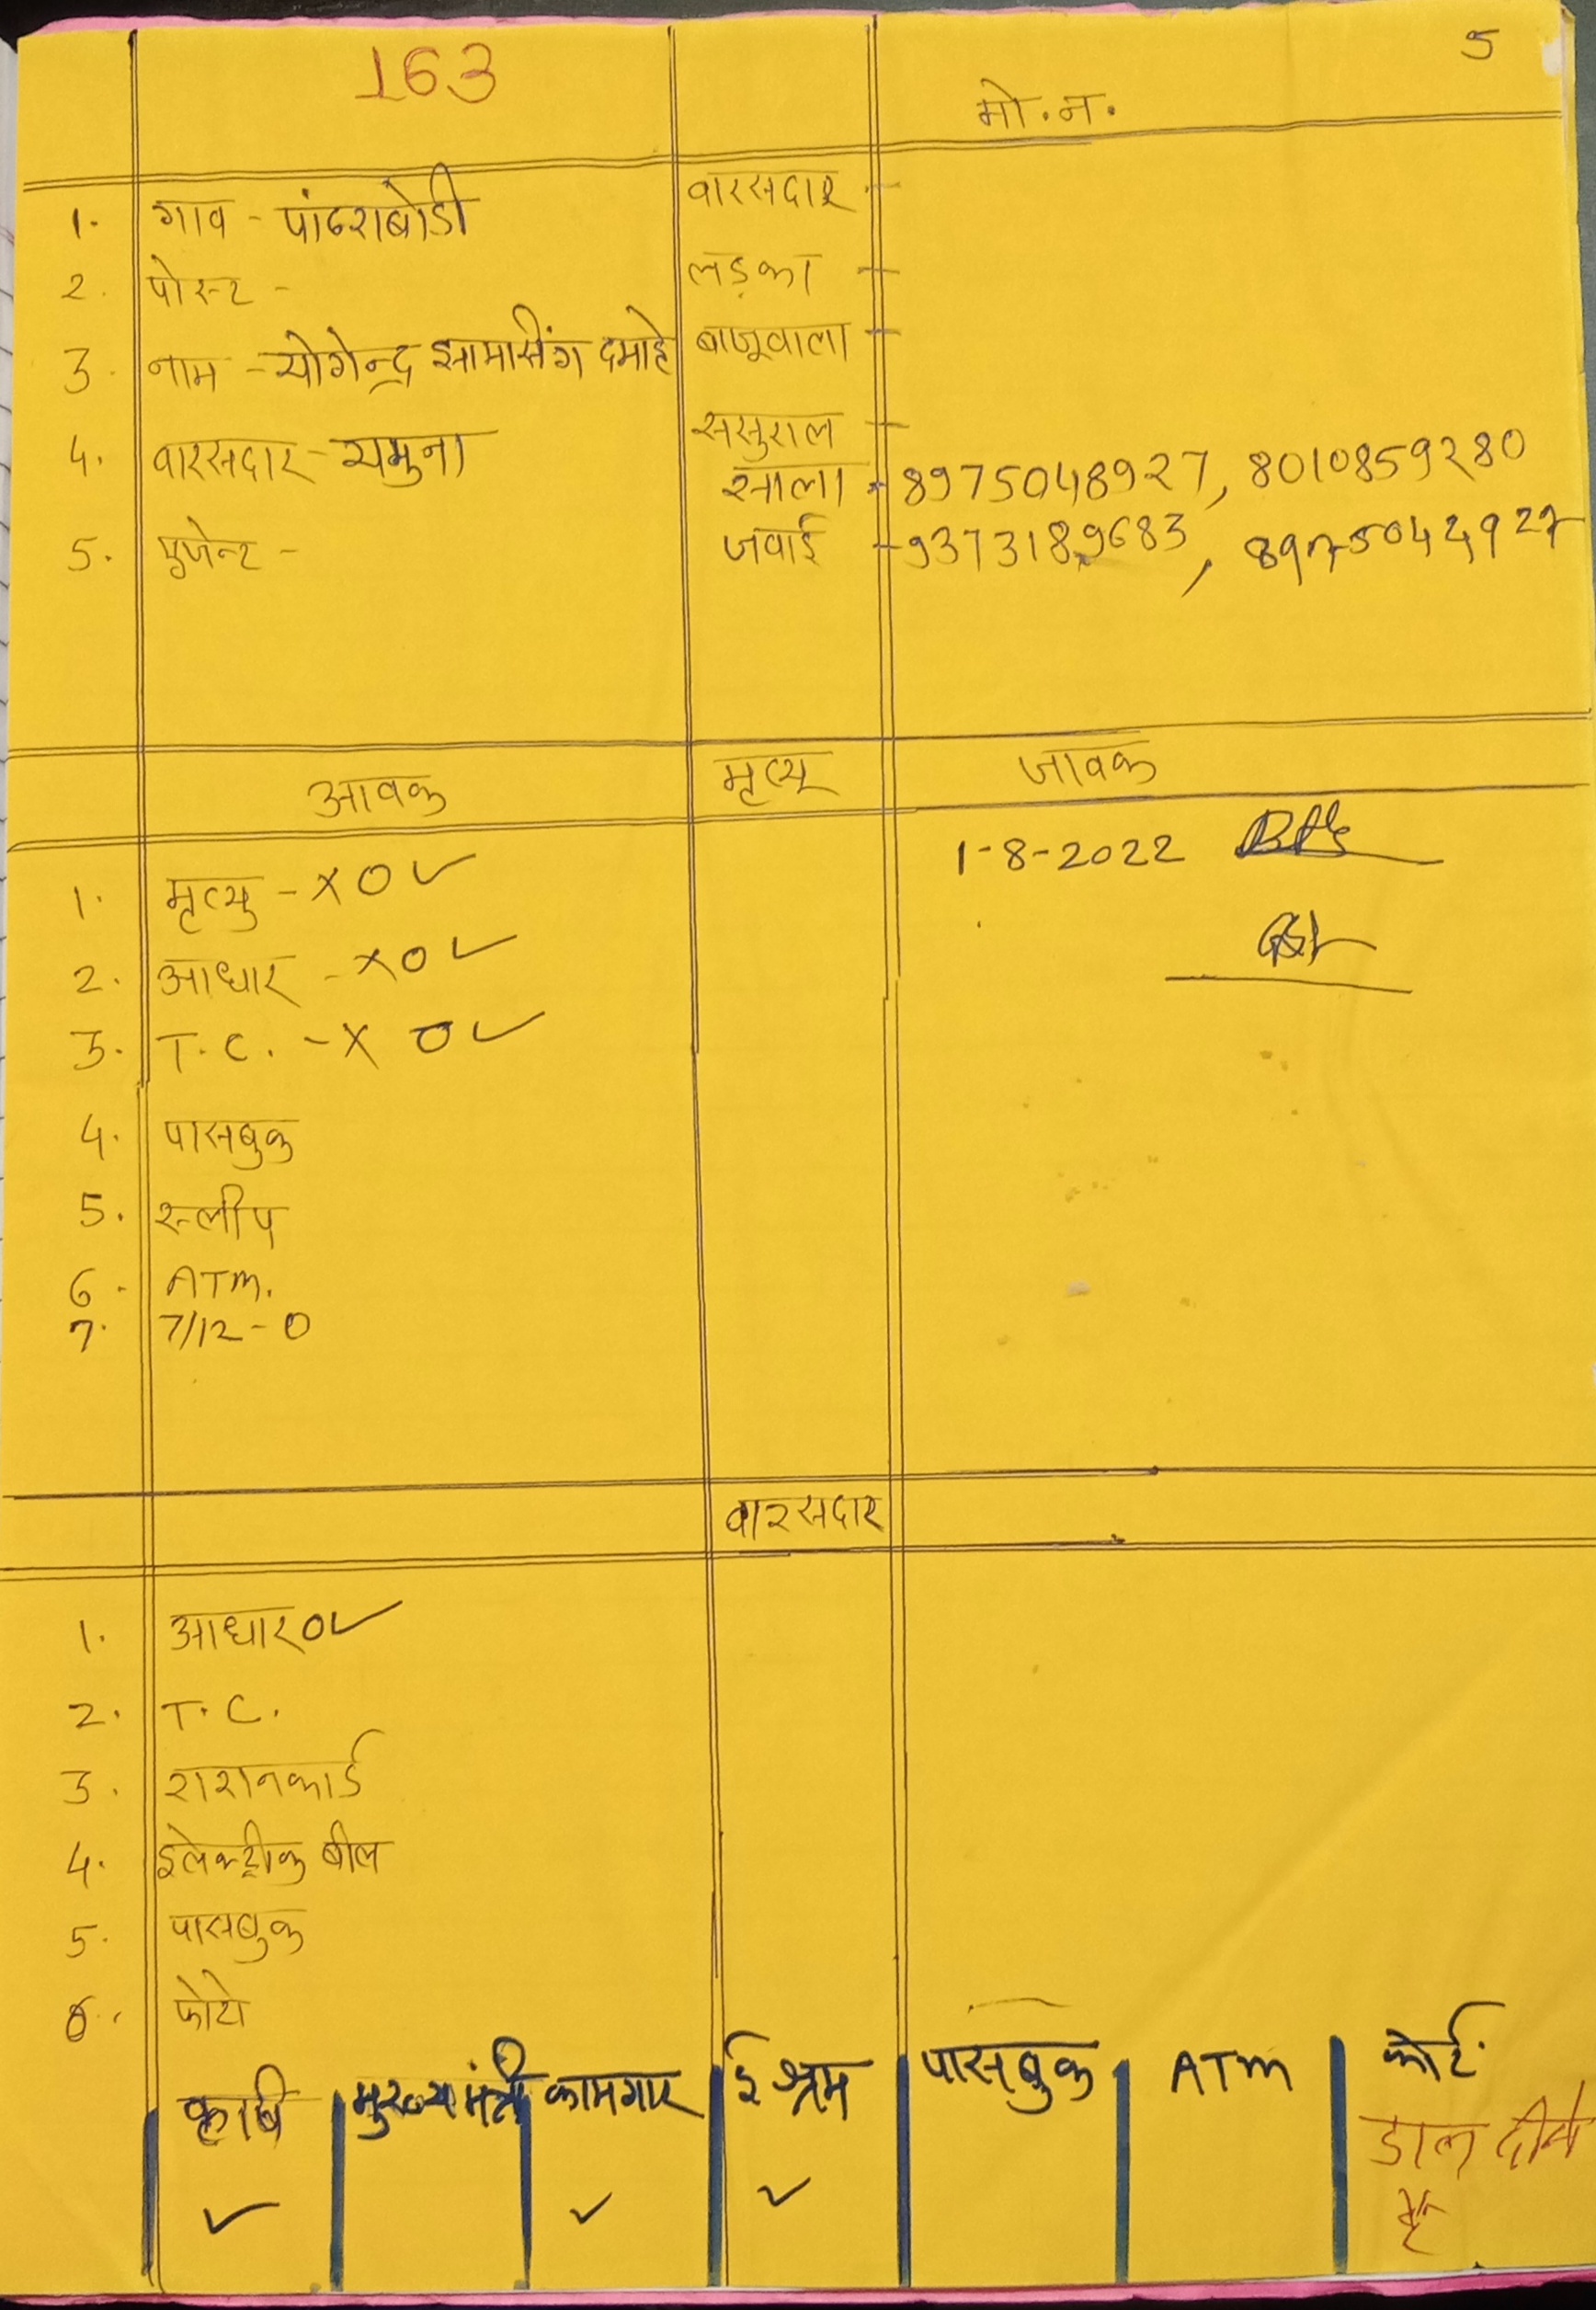 163
5
मो.न.
1. गाव - पांढराबोडी
वारसदार -
2. पोस्ट -
लड़का -
3. नाम - योगेन्द्र सामसिंग दमाहे
बाजूवाला -
4. वारसदार - यमुना
ससुराल -
साला - 8975048927, 8010859280
5. एजेन्ट -
जवाई - 9373189683, 8975042927
आवक मृत्यू जावक
1. मृत्यु - X O ✓
1-8-2022
2. आधार - X O ✓
3. T.C. - X O ✓
4. पासबुक
5. स्लीप
6. ATM.
7. 7/12 - O
वारसदार
1. आधार O ✓
2. T.C.
3. राशनकार्ड
4. इलेक्ट्रीक बील
5. पासबुक
6. फोटो
कृषि मुख्यमंत्री कामगार ई श्रम पासबुक ATM कोर्ट
✓ ✓ ✓ डाल दीये
है